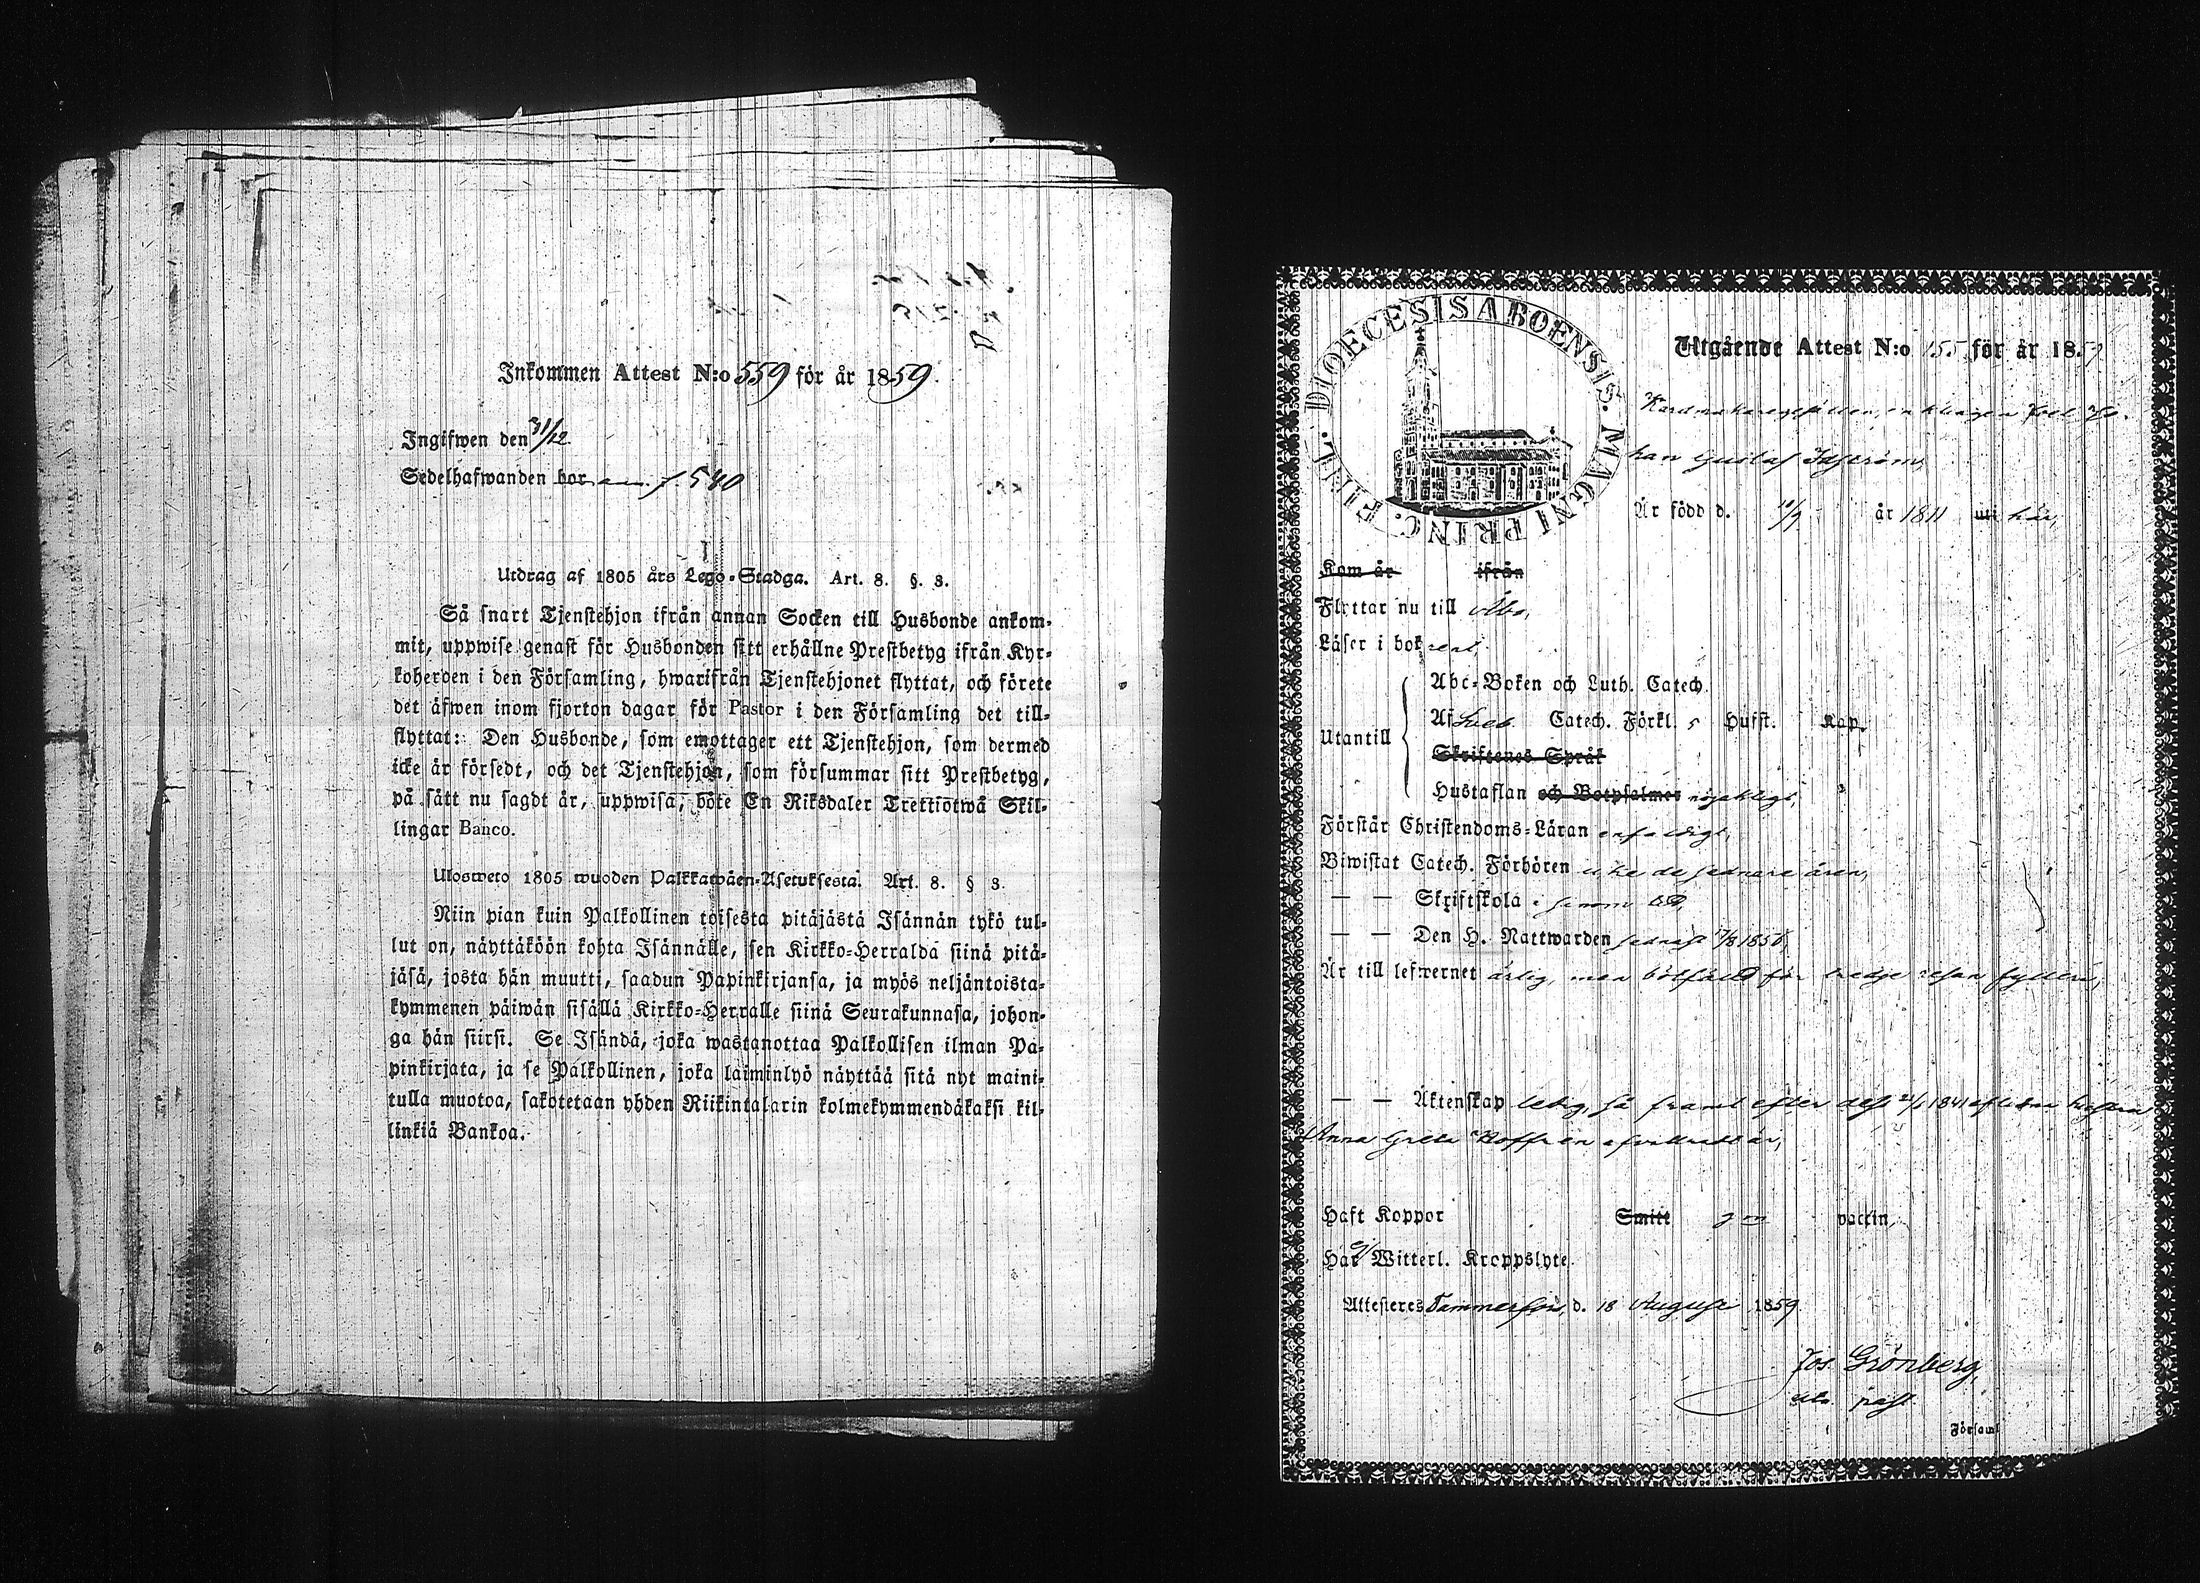 Inkommen Attest N:o 559 för år 1859.
Ingifwen den 31/12
Sedelhafwanden bor f. 540
Utdrag af 1805 års Lego-Stadga. Art. 8. §. 3.
Så snart Tjenstehjon ifrån annan Socken till Husbonde ankom-
mit, uppwise genast för Husbonden sitt erhållne Prestbetyg ifrån Kyr-
koherden i den Församling, hwarifrån Tjenstehjonet flyttat, och förete
det äfwen inom fjorton dagar för Pastor i den Församling det till-
flyttat: Den Husbonde, som emottager ett Tjenstehjon, som dermed
icke är försedt, och det Tjenstehjon, som försummar sitt Prestbetyg,
på sätt nu sagdt är, uppwisa, böte En Riksdaler Trettiotwå Skil-
lingar Banco.
Ulosweto 1805 wuoden Palkkawäen-Asetuksesta. Art. 8. § 3.
Niin pian kuin Palkollinen toisesta pitäjästä Isännän tykö tul-
lut on, näyttäköön kohta Isännälle, sen Kirkko-Herralda siinä pitä-
jäsä, josta hän muutti, saadun Papinkirjansa, ja myös neljäntoista-
kymmenen päiwän sisällä Kirkko-Herralle siinä Seurakunnasa, johon-
ga hän siirsi. Se Isändä, joka wastanottaa Palkollisen ilman Pa-
pinkirjata, ja se Palkollinen, joka laiminlyö näyttää sitä nyt maini-
tulla muotoa, sakotetaan yhden Riikintalarin kolmekymmendäkaksi kil-
linkiä Bankoa.
DIOECESIS ABOENSIS. MAGNI PRINC. FINL.
Utgående Attest N:o 155 för år 1859
han Gustaf
Är född d. år 1811 uti här,
Kom år ifrån
Flyttar nu till Åbo,
Läser i bok
Utantill
Abc-Boken och Luth. Catech.
Af Sveb Catech. Förkl. 5 Hufst. Kap.
Skriftenes Språk
Hustaflan och Botpsalmer nöjaktigt,
Förstår Christendoms-Läran enfaldigt,
Biwistat Catech. Förhören icke de sednare åren,
— — Skriftskola
— — Den H. Nattwarden sednast 7/8 1856,
Är till lefwernet ärlig, men bötfälld för tredje resan fylleri,
— — Äktenskap ledig, så framt efter dess 1841 aflidna hustru
Anna Greta Hoffrén afvittradt är,
Haft Koppor Smitt gm vaccin
Har ej Witterl. Kroppslyte.
Attesteres Tammerfors, d. 18 August 1859
Jos. Grönberg,
past.
Församl